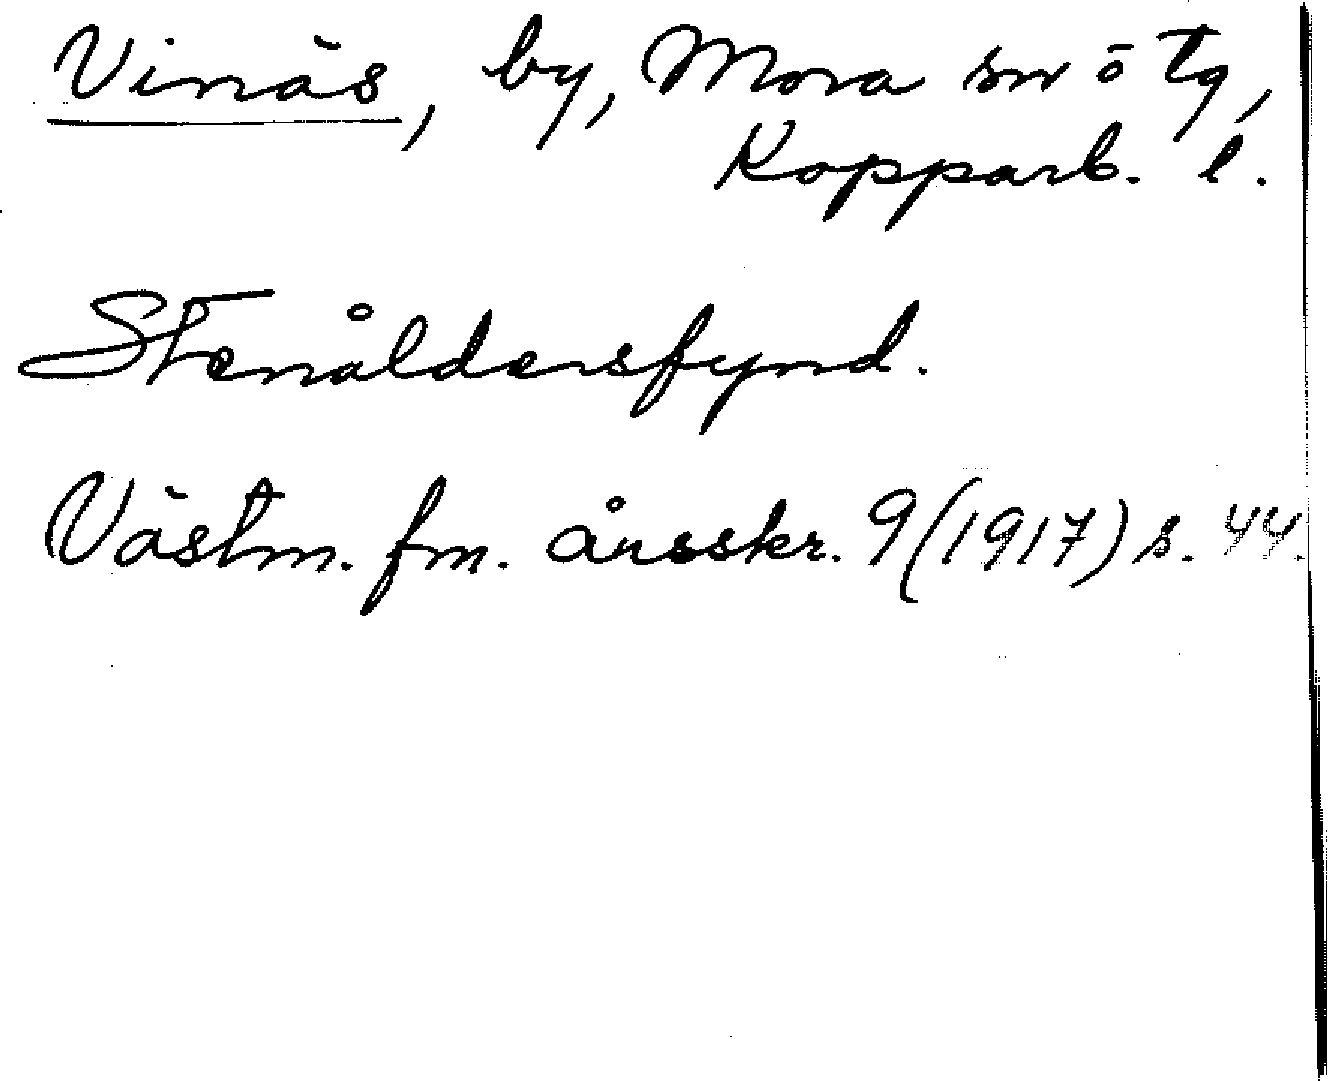 Vinäs, by, Mora sn ö tg,
Kopparb. l.
Stenåldersfynd.
Västm. fm. årsskr. 9 (1917) s. 44.